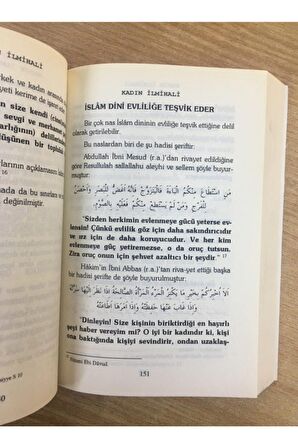 İLMİHALİ
rkek ve kadın aramda
yeti kerime de işaret
n size kendi (cinsi
sevgi ve merhame
arlığının) delillerin
üşünen bir topluluk
rının açıklamasını
da bu sınırları n
değinilmiştir.
KADIN İLMİHALİ
İSLÂM DİNİ EVLİLİĞE TEŞVİK EDER
Bir çok nas İslâm dininin evliliğe teşvik ettiğine delil
olarak getirilebilir.
Bu naslardan biri de şu hadisi şeriftir:
Abdullah İbni Mesud (r.a.)'dan rivayet edildiğine
göre Resullulah sallallahu aleyhi ve sellem şöyle buyur-
muştur:
مَنِ اسْتَطَاعَ مِنْكُمُ الْبَاءَةَ فَالْيَتَزَوَّجْ فَأَنَّهُ أَغَضُّ لِلْبَصَرِ وَأَحْصَنُ
لِلْفَرْجِ وَمَنْ لَمْ يَسْتَطِعْ مِنْكُمْ فَعَلَيْهِ بِالصَّوْمِ
"Sizden herkimin evlenmeye gücü yeterse ev-
lensin! Çünkü evlilik göz için daha sakındırıcıdır
ve ırz için de daha koruyucudur. Ve her kim
evlenmeye güç yetiremezse, o da oruç tutsun.
Zira oruç onun için şehvet azaltıcı bir şeydir." 17
Hâkim'in İbni Abbas (r.a.)'tan riva-yet ettiği başka
bir hadisi şerifte de şöyle buyurulmuştur:
أَلَا أُخْبِرُكُمْ بِخَيْرِ مَا يَكْنِزُ الْمَرْءُ الْمَرْأَةُ الصَّالِحَةُ إِذَا نَظَرَ
وَإِذَا غَابَ عَنْهَا حَفِظَتْهُ وَإِذَا أَمَرَهَا أَطَاعَتْهُ
"Dinleyin! Size kişinin biriktirdiği en hayırlı
şeyi haber vereyim mi? O iyi bir kadındır ki, kişi
ona baktığında kişiyi sevindirir, ondan uzaklaş-
17 Süneni Ebi Davud
151